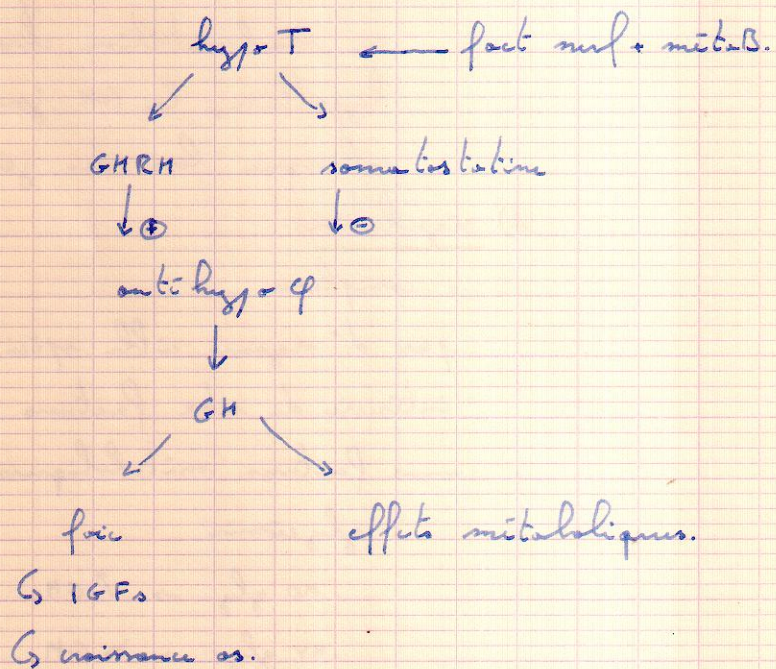 hypo T ← fact nerf + métaB.
GHRH somatostatine
↓ ⊕ ↓ ⊖
antéhypo φ
↓
GH
foie effets métaboliques.
↳ IGFs
↳ croissance os.